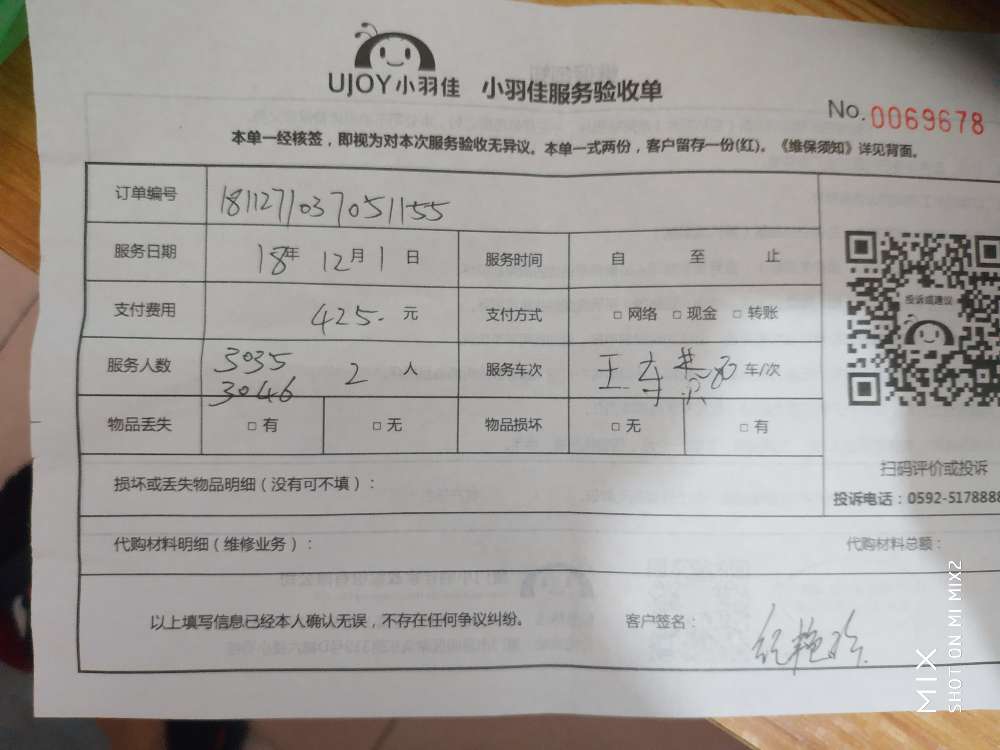 UJOY小羽佳 小羽佳服务验收单
No.0069678
本单一经核签，即视为对本次服务验收无异议。本单一式两份，客户留存一份(红)。《维保须知》详见背面。
订单编号 1811271037051155
服务日期 18年 12月 1 日 服务时间 自 至 止
支付费用 425. 元 支付方式 □ 网络 □ 现金 □ 转账
服务人数 3035 3046 2 人 服务车次 王 车/次
物品丢失 □ 有 □ 无 物品损坏 □ 无 □ 有
投诉或建议
扫码评价或投诉
投诉电话：0592-5178888
损坏或丢失物品明细（没有可不填）：
代购材料明细（维修业务）： 代购材料总额：
以上填写信息已经本人确认无误，不存在任何争议纠纷。 客户签名：
MIX
SHOT ON MI MIX2